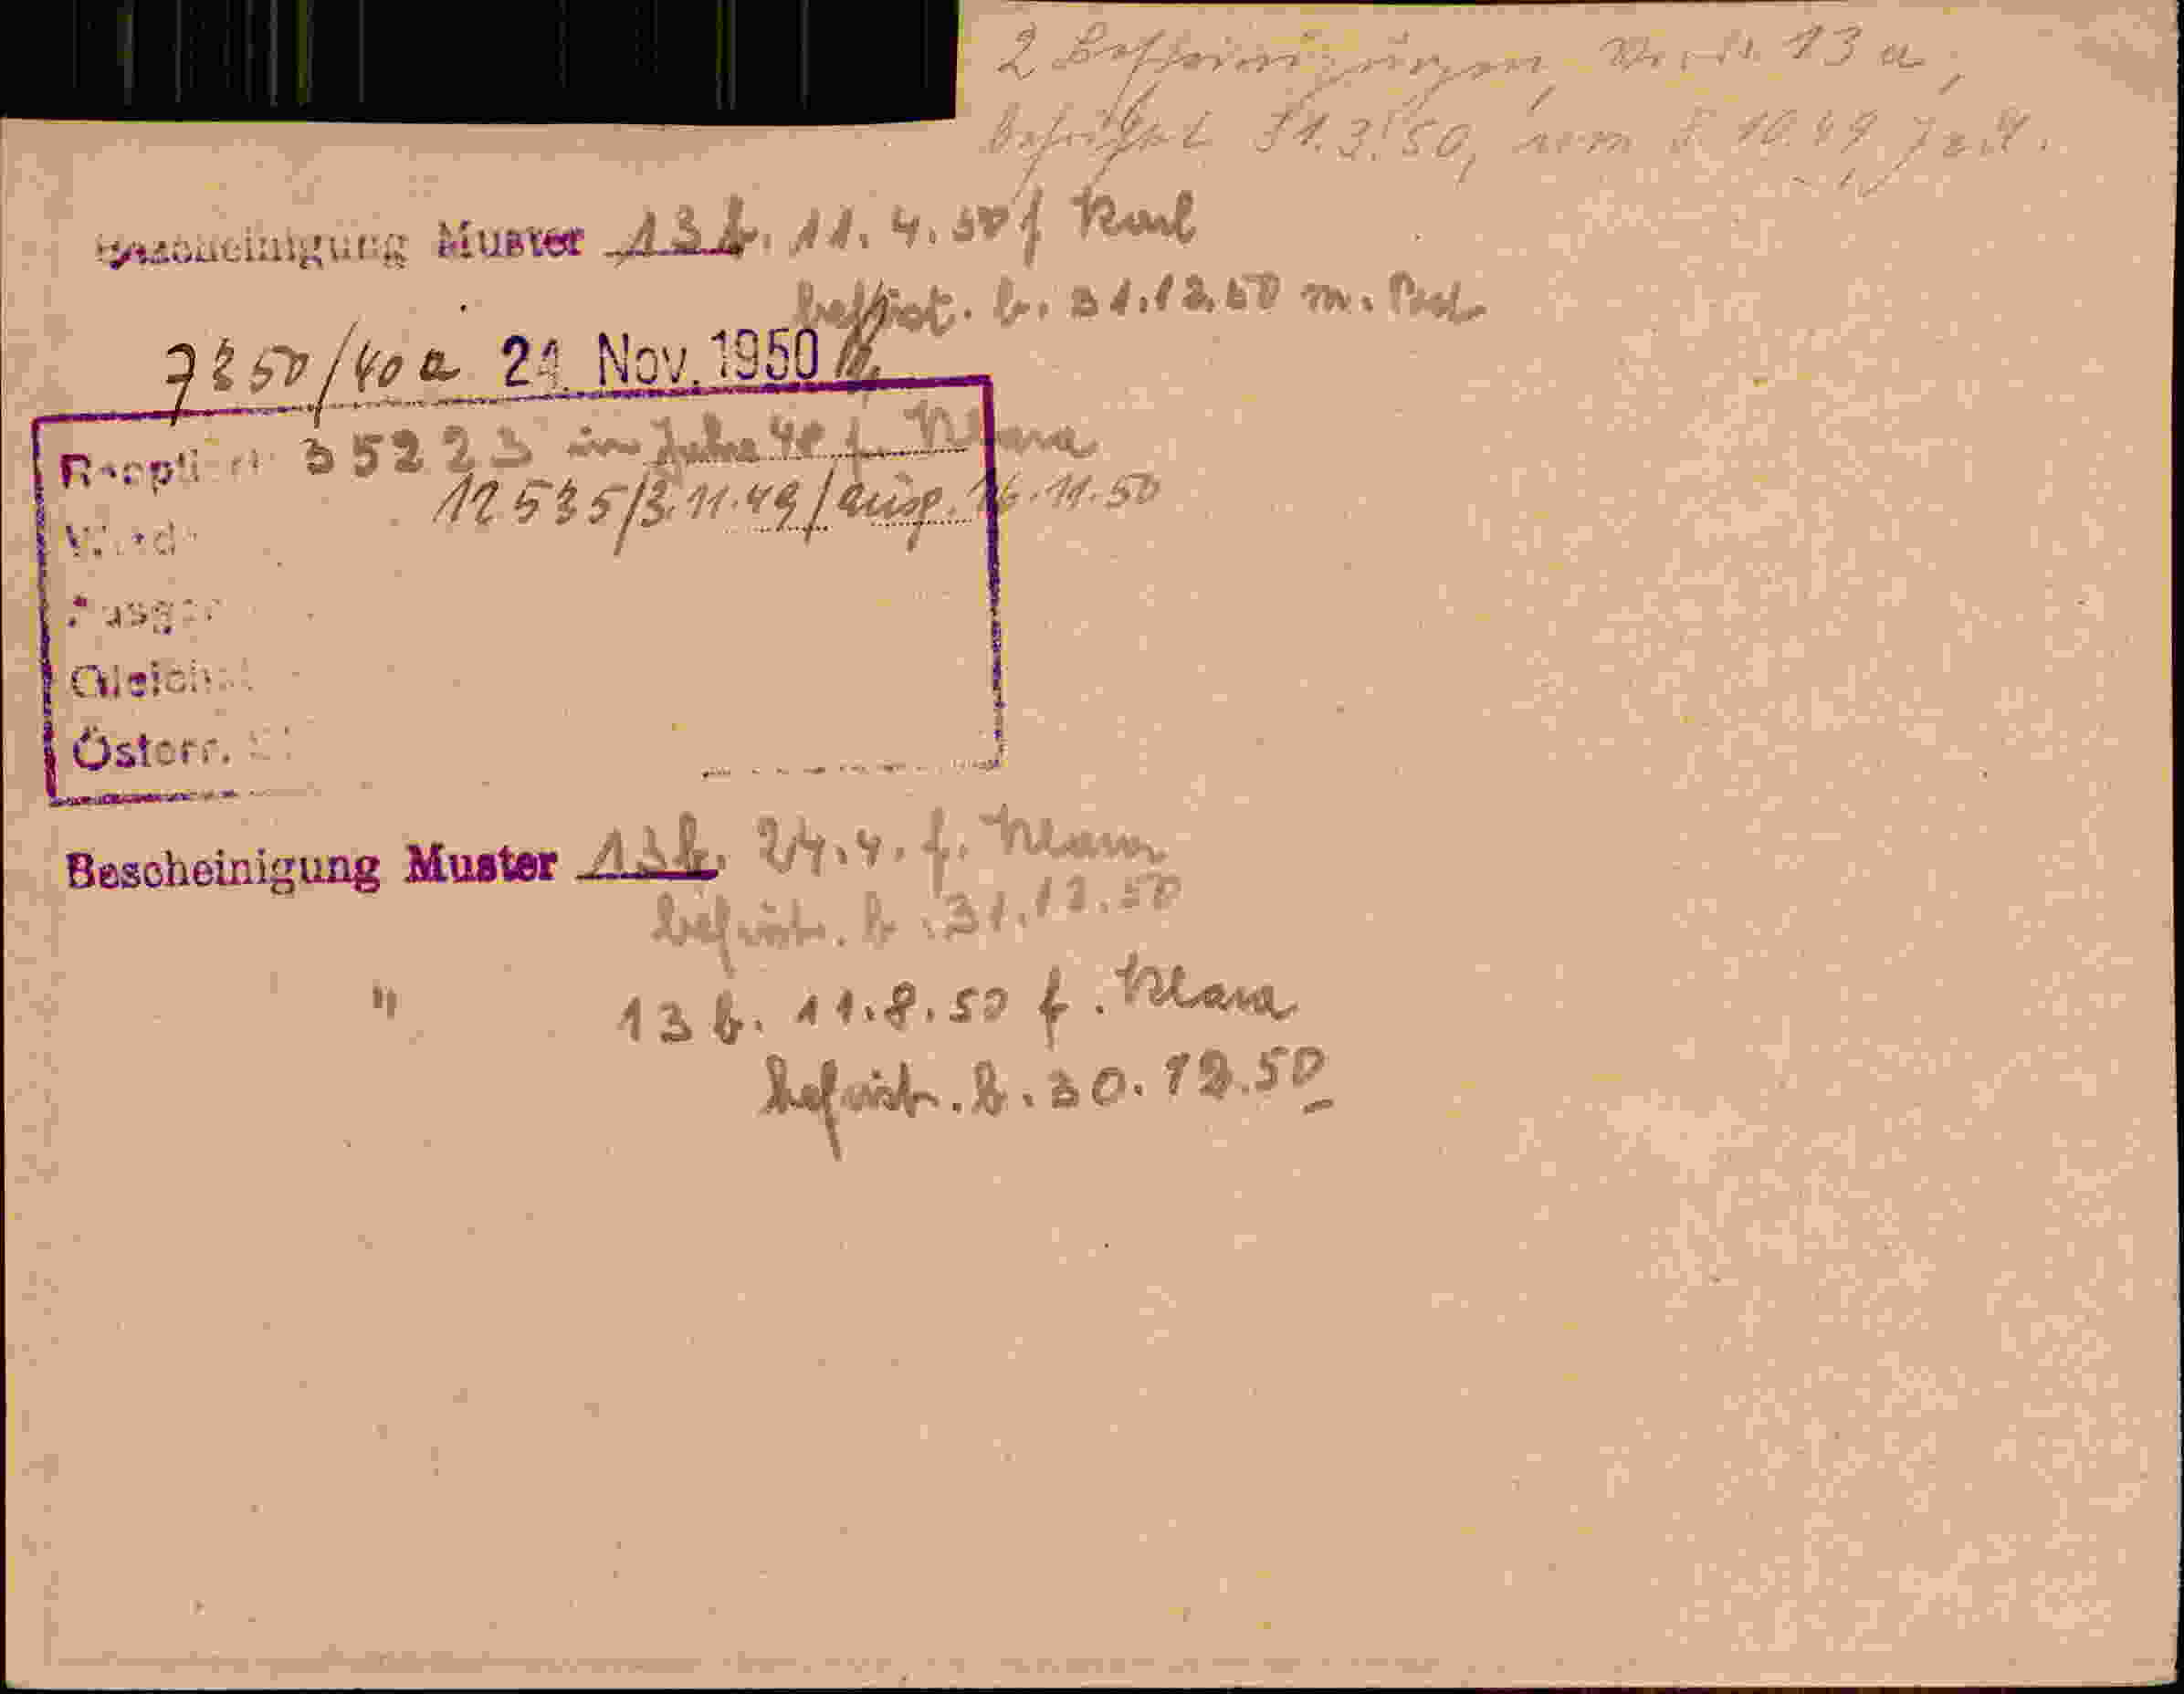 2 Bescheinigungen, 13 a,
befristet 31.3.50, vom 10.49
Bescheinigung Muster 13 b. 11.4.50 f Karl
befrist. b. 31.12.50 m.
7850/40 a 24. Nov. 1950
35223 im Jahre 40 f. Klara
12535/3.11.49/ausg. 16.11.50
Österr.
Bescheinigung Muster 13 b. 24.4. f. Klara
befrist. b. 31.12.50
" 13 b. 11.8.50 f. Klara
befrist. b. 30.12.50